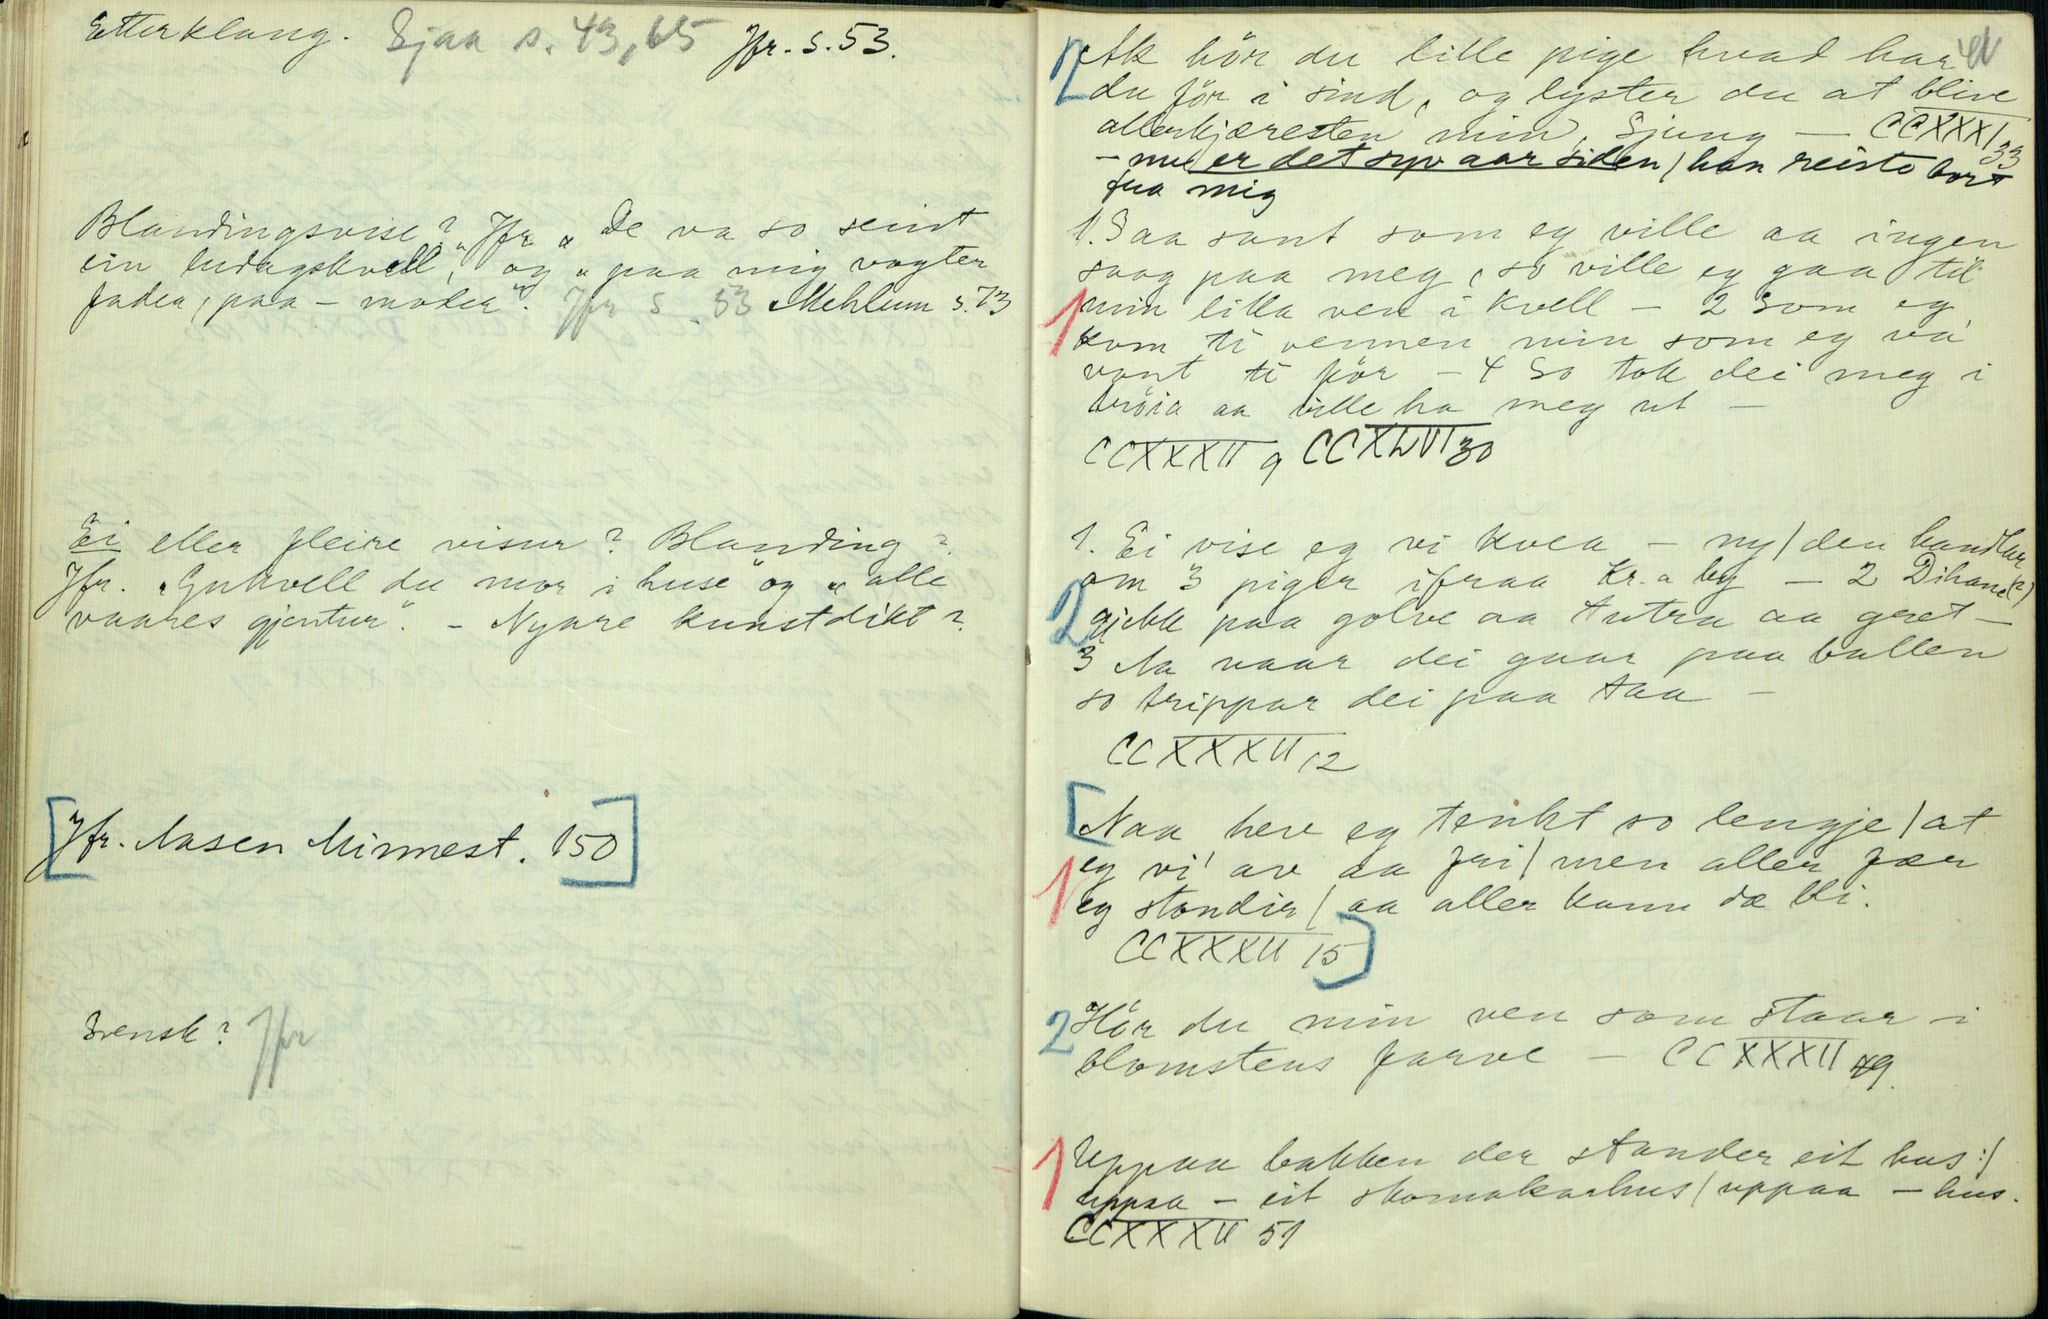 Etterklang. Sjaa s. 43, 65 Jfr. s. 53.
Blandingsvise? Jfr "De va so seint
ein laudagskvell", og "paa mig vogter
fader, paa – moder". Jfr s. 53 Mehlum s. 73
Ei eller fleire visur? Blanding?
Jfr. "Gukvell du mor i huse" og "alle
vaares gjentur". – Nyare kunstdikt?
[Jfr. Aasen Minnest. 150]
Svensk? Jfr
2 Ak hör du lille pige hvad har
du för i sind, og lyster du at blive
allerkjæresten min, Sjung – CCXXXI 33
– nu er det syv aar siden / han reiste bort
fra mig
1. Saa sant som eg ville aa ingen
saag paa meg, so ville eg gaa til
1 min lilla ven i kvell – 2 Som eg
kom ti vennen min som eg va
vant ti för – 4 So tok dei meg i
tröia aa ville ha meg ut –
CCXXXII 9 CCXLVI 30
1. Ei vise eg vi kvea – ny / den handlar
om 3 piger ifraa Kr.a by – 2 Dihane(?)
2 gjekk paa golve aa tutra aa gret –
3 Aa naar dei gaar paa ballen
so trippar dei paa taa –
CCXXXII 12
[Naa heve eg tenkt so lengje / at
1 eg vi' av aa fri / men aller fær
eg stondir / aa aller kann dæ bli.
CCXXXII 15]
2 Hör du min ven som staar i
blomstens farve – CCXXXII 49.
1 Uppaa bakken der stander eit hus :/
uppaa – eit skomakarhus / uppaa – hus.
CCXXXII 51